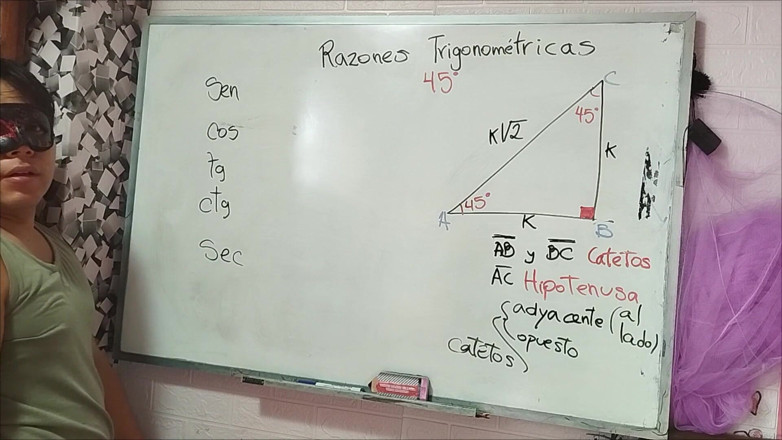 Razones Trigonométricas
45°
Sen
cos
Tg
ctg
Sec
C
45°
K√2
K
A
45°
K
B
AB y BC Catetos
AC Hipotenusa
catetos
adyacente (al lado)
opuesto